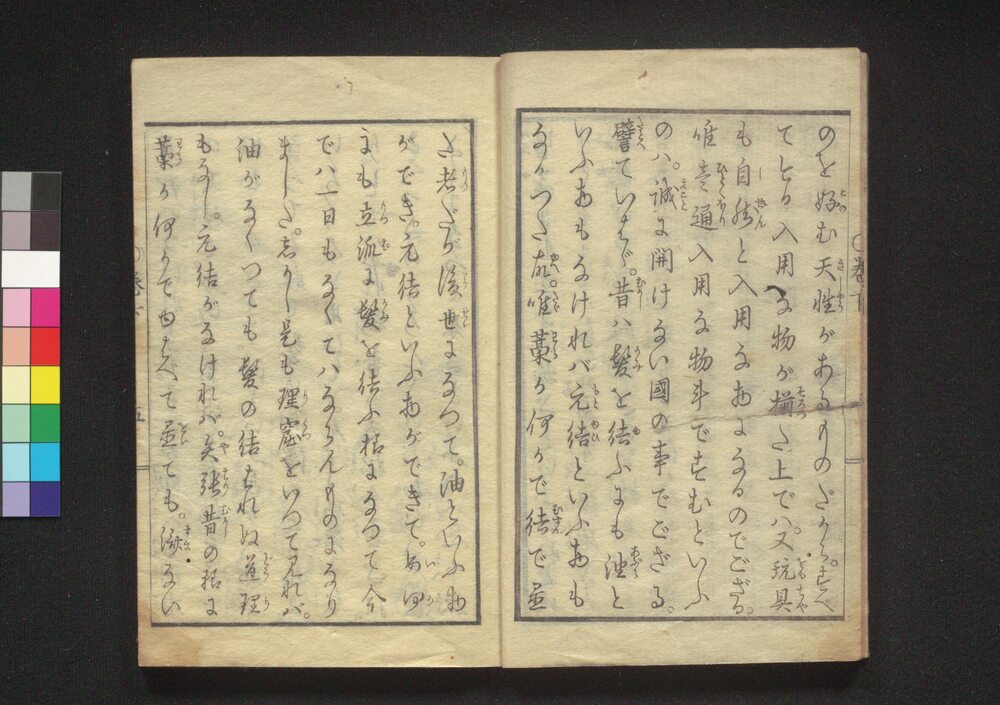 〇巻下
のを好む天性があるものだから。すべ
て入用な物が揃た上でハ。又玩具
も自然と入用な物になるのでござる。
唯壱通入用な物斗ですむといふ
のハ。誠に開けない國の事でござる。
譬ていはゞ。昔ハ髪を結ふにも油と
いふ物もなけれバ元結といふ物も
なかつた故。唯藁か何かで結で置
た者だが後世になつて。油といふ物
ができ。元結といふ物ができて。如何
にも立派に髪を結ふ様になつて。今
でハ一日もなくてハならんものになり
ました。しかし是も理窟をいつて見れバ。
油がなくつても髪の結はれぬ道理
もなし。元結がなけれバ。矢張昔の様に
藁か何かでゆはへて置ても。濟ない
〇巻下 五